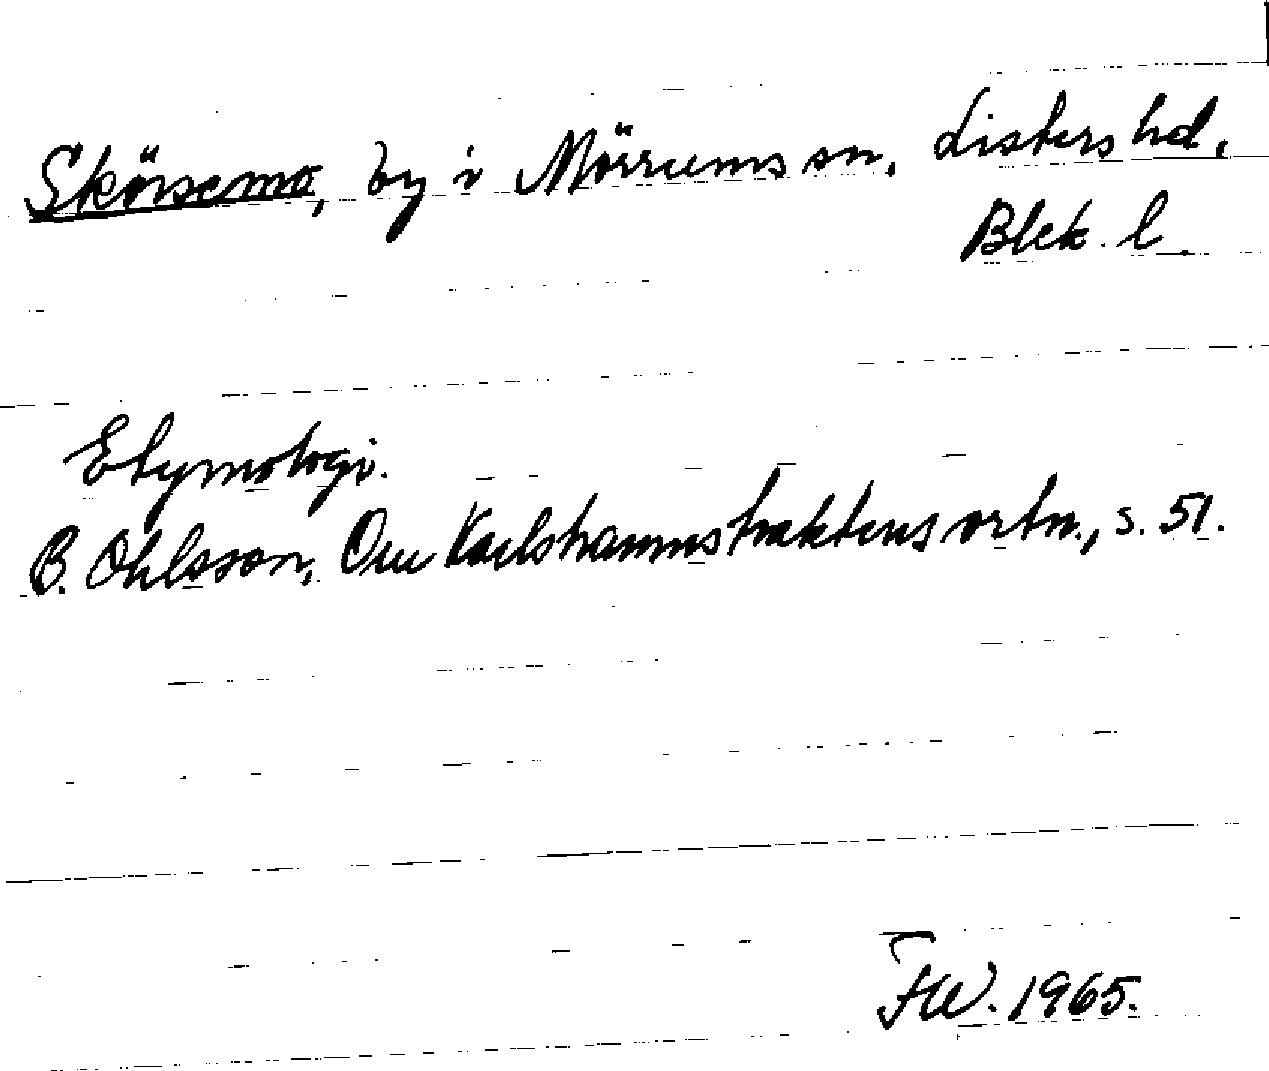 Skörsemo, by i Mörrums sn, Listers hd,
Blek. l.
Etymologi.
B. Ohlsson, Om Karlshamnstraktens ortn., s. 51.
FW. 1965.